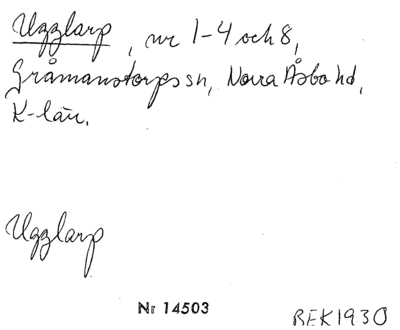 Ugglarp, nr 1-4 och 8,
Gråmanstorps sn, Norra Åsbo hd,
K-län.
Ugglarp
Nr 14503
BEK1930